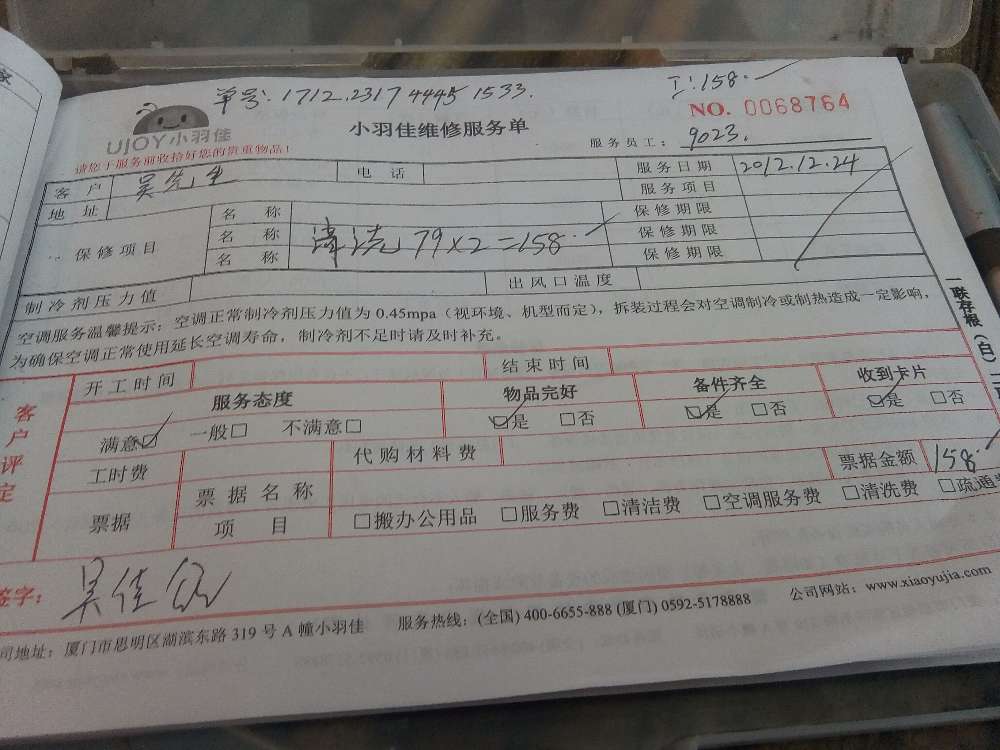 单号: 1712.2317 4445 1533.
工:158.
NO. 0068764
UJOY小羽佳
小羽佳维修服务单
服务员工: 9023.
请您于服务前收拾好您的贵重物品!
客户 吴先生 电话 服务日期 2012.12.24
地址 服务项目
保修项目 名称 保修期限
名称 清洗 79×2=158 保修期限
名称 保修期限
制冷剂压力值 出风口温度
空调服务温馨提示:空调正常制冷剂压力值为 0.45mpa(视环境、机型而定),拆装过程会对空调制冷或制热造成一定影响,
为确保空调正常使用延长空调寿命,制冷剂不足时请及时补充。
一联存根(白)
客户评定
开工时间 结束时间
服务态度 物品完好 备件齐全 收到卡片
满意☑ 一般□ 不满意□ ☑是 □否 ☑是 □否 ☑是 □否
工时费 代购材料费 票据金额 158.
票据 票据名称
项目 □搬办公用品 □服务费 □清洁费 □空调服务费 □清洗费 □疏通费
签字: 吴佳
司地址:厦门市思明区湖滨东路 319 号 A 幢小羽佳 服务热线:(全国) 400-6655-888 (厦门) 0592-5178888 公司网站:www.xiaoyujia.com